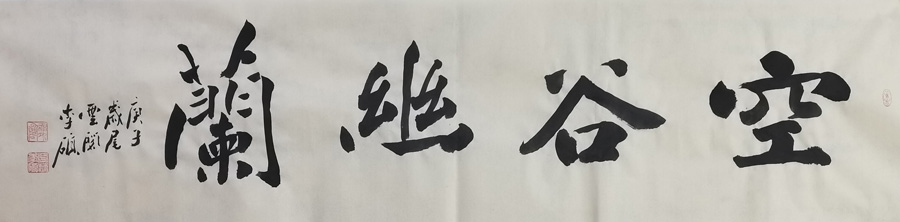 空谷幽蘭
庚子
歲尾
雲閣
李碩